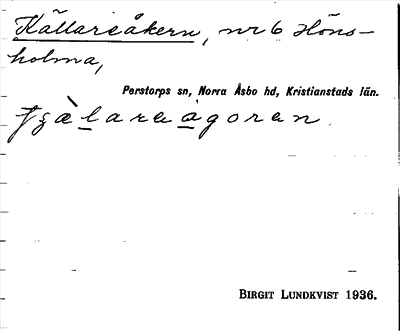 Källareåkern, nr 6 Höns-
holma,
Perstorps sn, Norra Åsbo hd, Kristianstads län.
BIRGIT LUNDKVIST 1936.